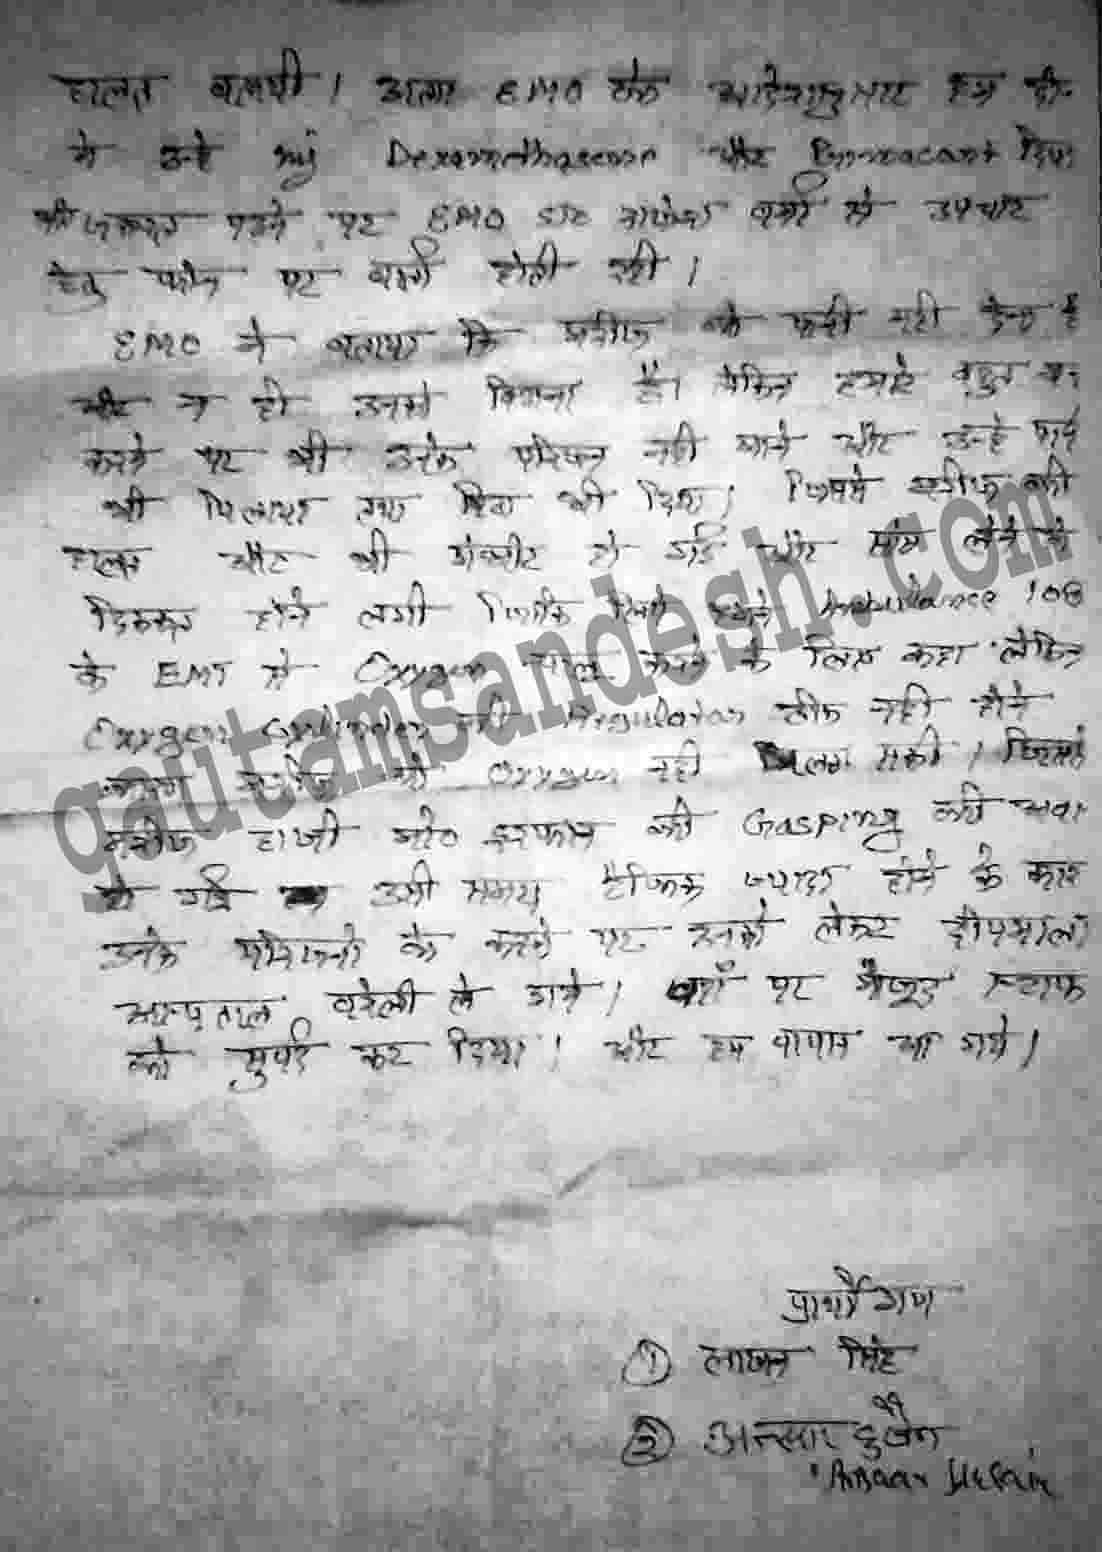 हालत बतायी। अतः EMO के आदेशानुसार हम दो-
ने उन्हें Inj Dexamethasone और दिया
की जरूरत पडने पर EMO डा० वर्मा से उपचार
हेतु फोन पर वार्ता होती रही।
EMO ने बताया कि मरीज को पानी नही देना है
और न ही उनको हिलाना है। लेकिन हमारे बहुत मना
करने पर भी उनके परिजन नही माने और उन्हे पानी
भी पिलाया तथा हिला भी दिया। जिससे मरीज की
हालत और भी गंभीर हो गई और सांस लेने मे
दिक्कत होने लगी जिसके लिये हमने Ambulance 108
के EMT से Oxygen चालू करने के लिए कहा लेकिन
Oxygen Cylinder की Regulator ठीक नही होने
कारण मरीज को Oxygen नही मिल सकी। जिससे
मरीज हाजी मो० इरफान की Gasping की अवस्था
हो गई उसी समय ट्रैफिक ज्यादा होने के कारण
उनके परिजनो के कहने पर उनको लेकर दीपमाला
अस्पताल बरेली ले गये। वहाँ पर मौजूद स्टाफ
को सुपुर्द कर दिया। और हम वापस आ गये।
प्रार्थीगण
① लाखन सिंह
② अन्सार हुसैन
Ansaar Husain
gautamsandesh.com